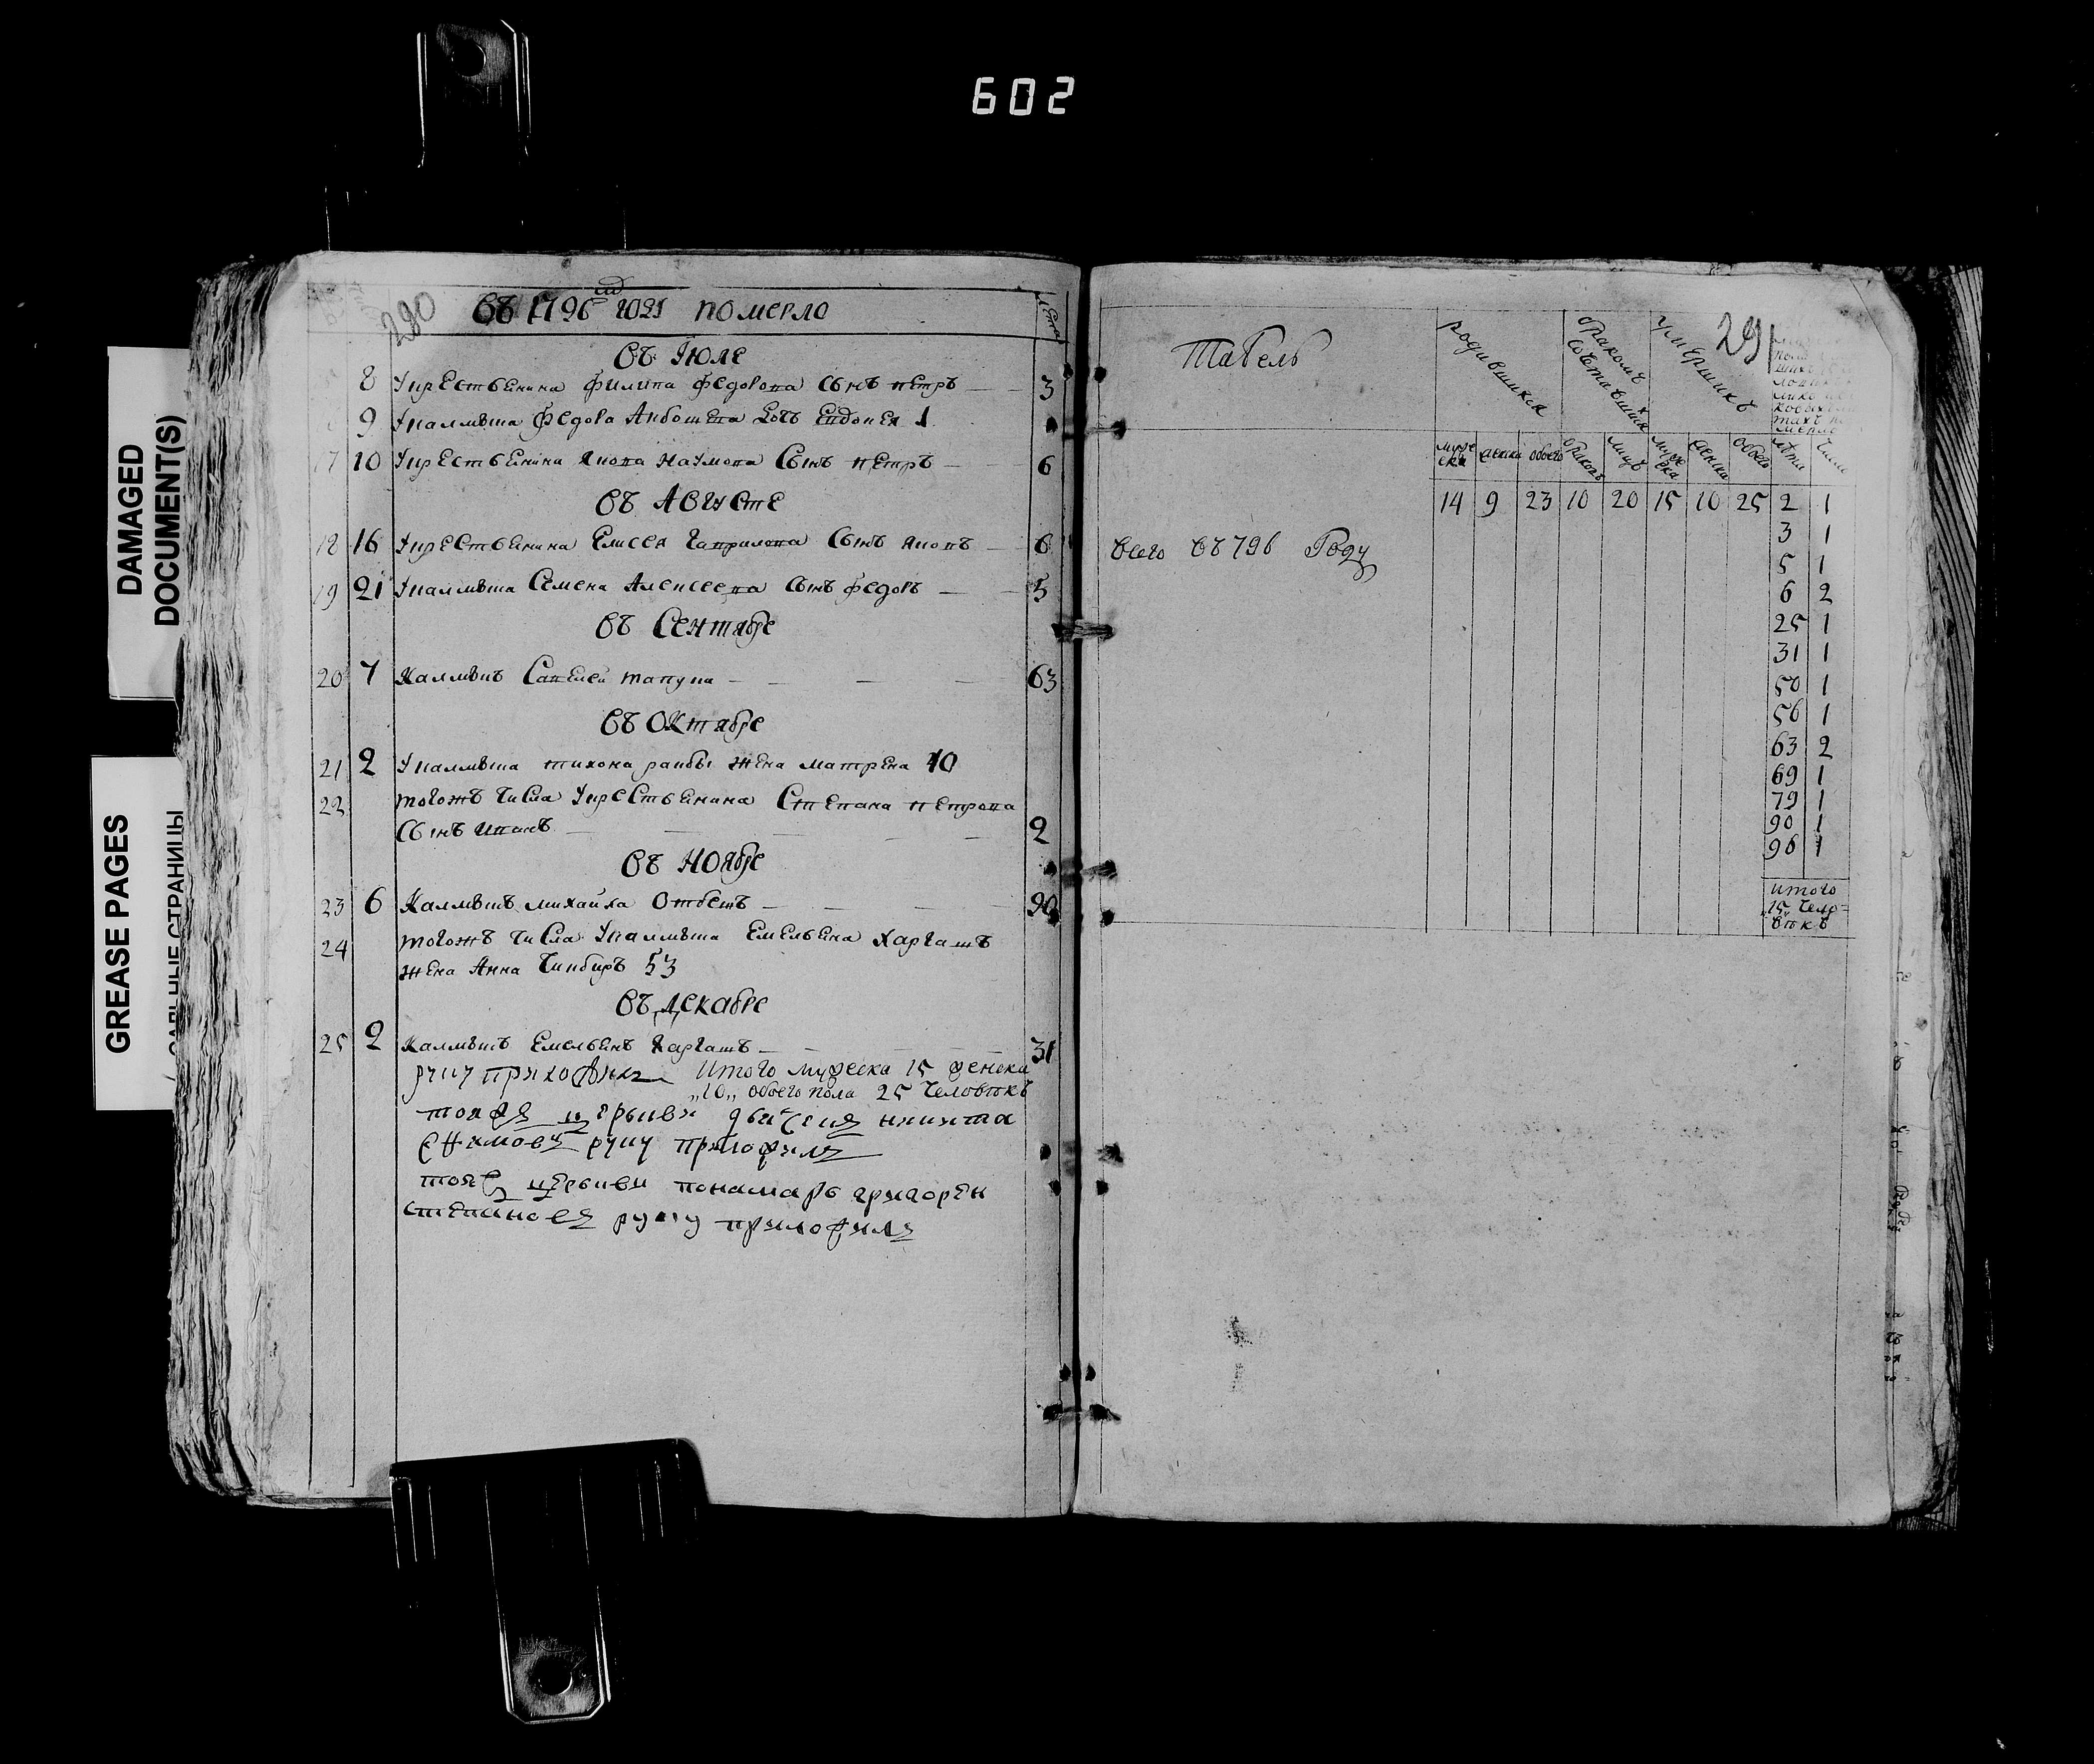 602
DAMAGED
DOCUMENT(S)
GREASE PAGES
САЛЬНЫЕ СТРАНИЦЫ
290
въ 1796 году померло
лета
въ Июле
8 у крестьянина Филипа Федорова сынъ Петръ 3
9 у калмыка Федора дочь Евдокея 1
17 10 у крестьянина Якова Наумова сынъ Петръ 6
въ Августе
18 16 у крестьянина Елисея Гаврилова сынъ Яковъ 6
19 21 у калмыка Семена Алексеева сынъ Федоръ 5
въ Сентябре
20 7 калмыкъ Савелей 63
въ Октябре
21 2 у калмыка Тихона жена Матрена 40
22 тогожъ числа у крестьянина Степана Петрова
сынъ Иванъ 2
въ Ноябре
23 6 калмыкъ Михайла 90
24 тогожъ числа у калмыка Емельяна
жена Анна 53
въ Декабре
25 2 калмыкъ Емельянъ 31
руку приложилъ Итого мужеска 15 женска
„10„ обоего пола 25 человѣкъ
тояжъ церькви Никита
руку приложилъ
тояжъ церькви понамарь Григореи
Степановъ руку приложилъ
291
Табель
родившихся
бракомъ
сочетавшихся
умершихъ
муже
ска
женска
обоего
браковъ
лицъ
муже
ска
женска
обоего
лѣта
число
14 9 23 10 20 15 10 25 2 1
3 1
всего въ 796 году
5 1
6 2
25 1
31 1
50 1
56 1
63 2
69 1
79 1
90 1
96 1
итого
„15„ чело=
вѣкъ